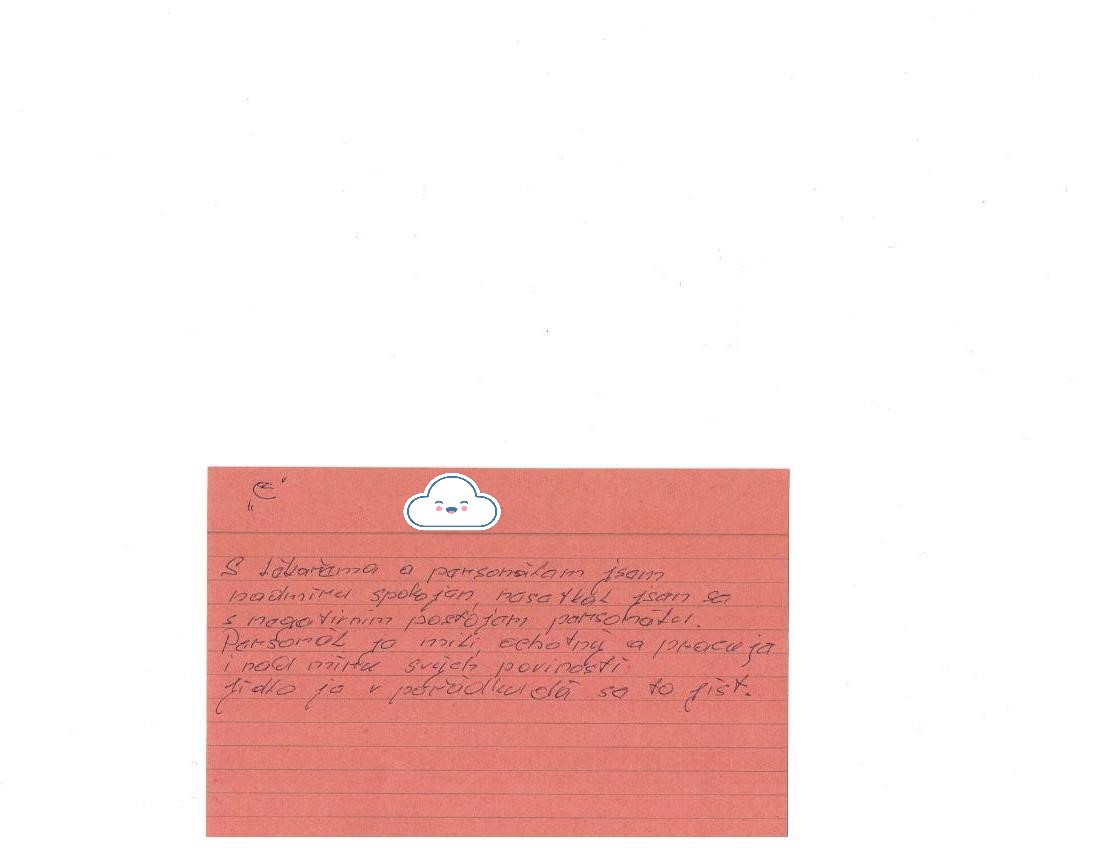 „E"
S lékařema a personálem jsem
nadmíru spokojen, nesetkal jsem se
s negativním postojem personálu.
Personál je milí, ochotný a pracuje
i nad míru svých poviností.
Jídlo je v pořádku dá se to jíst.